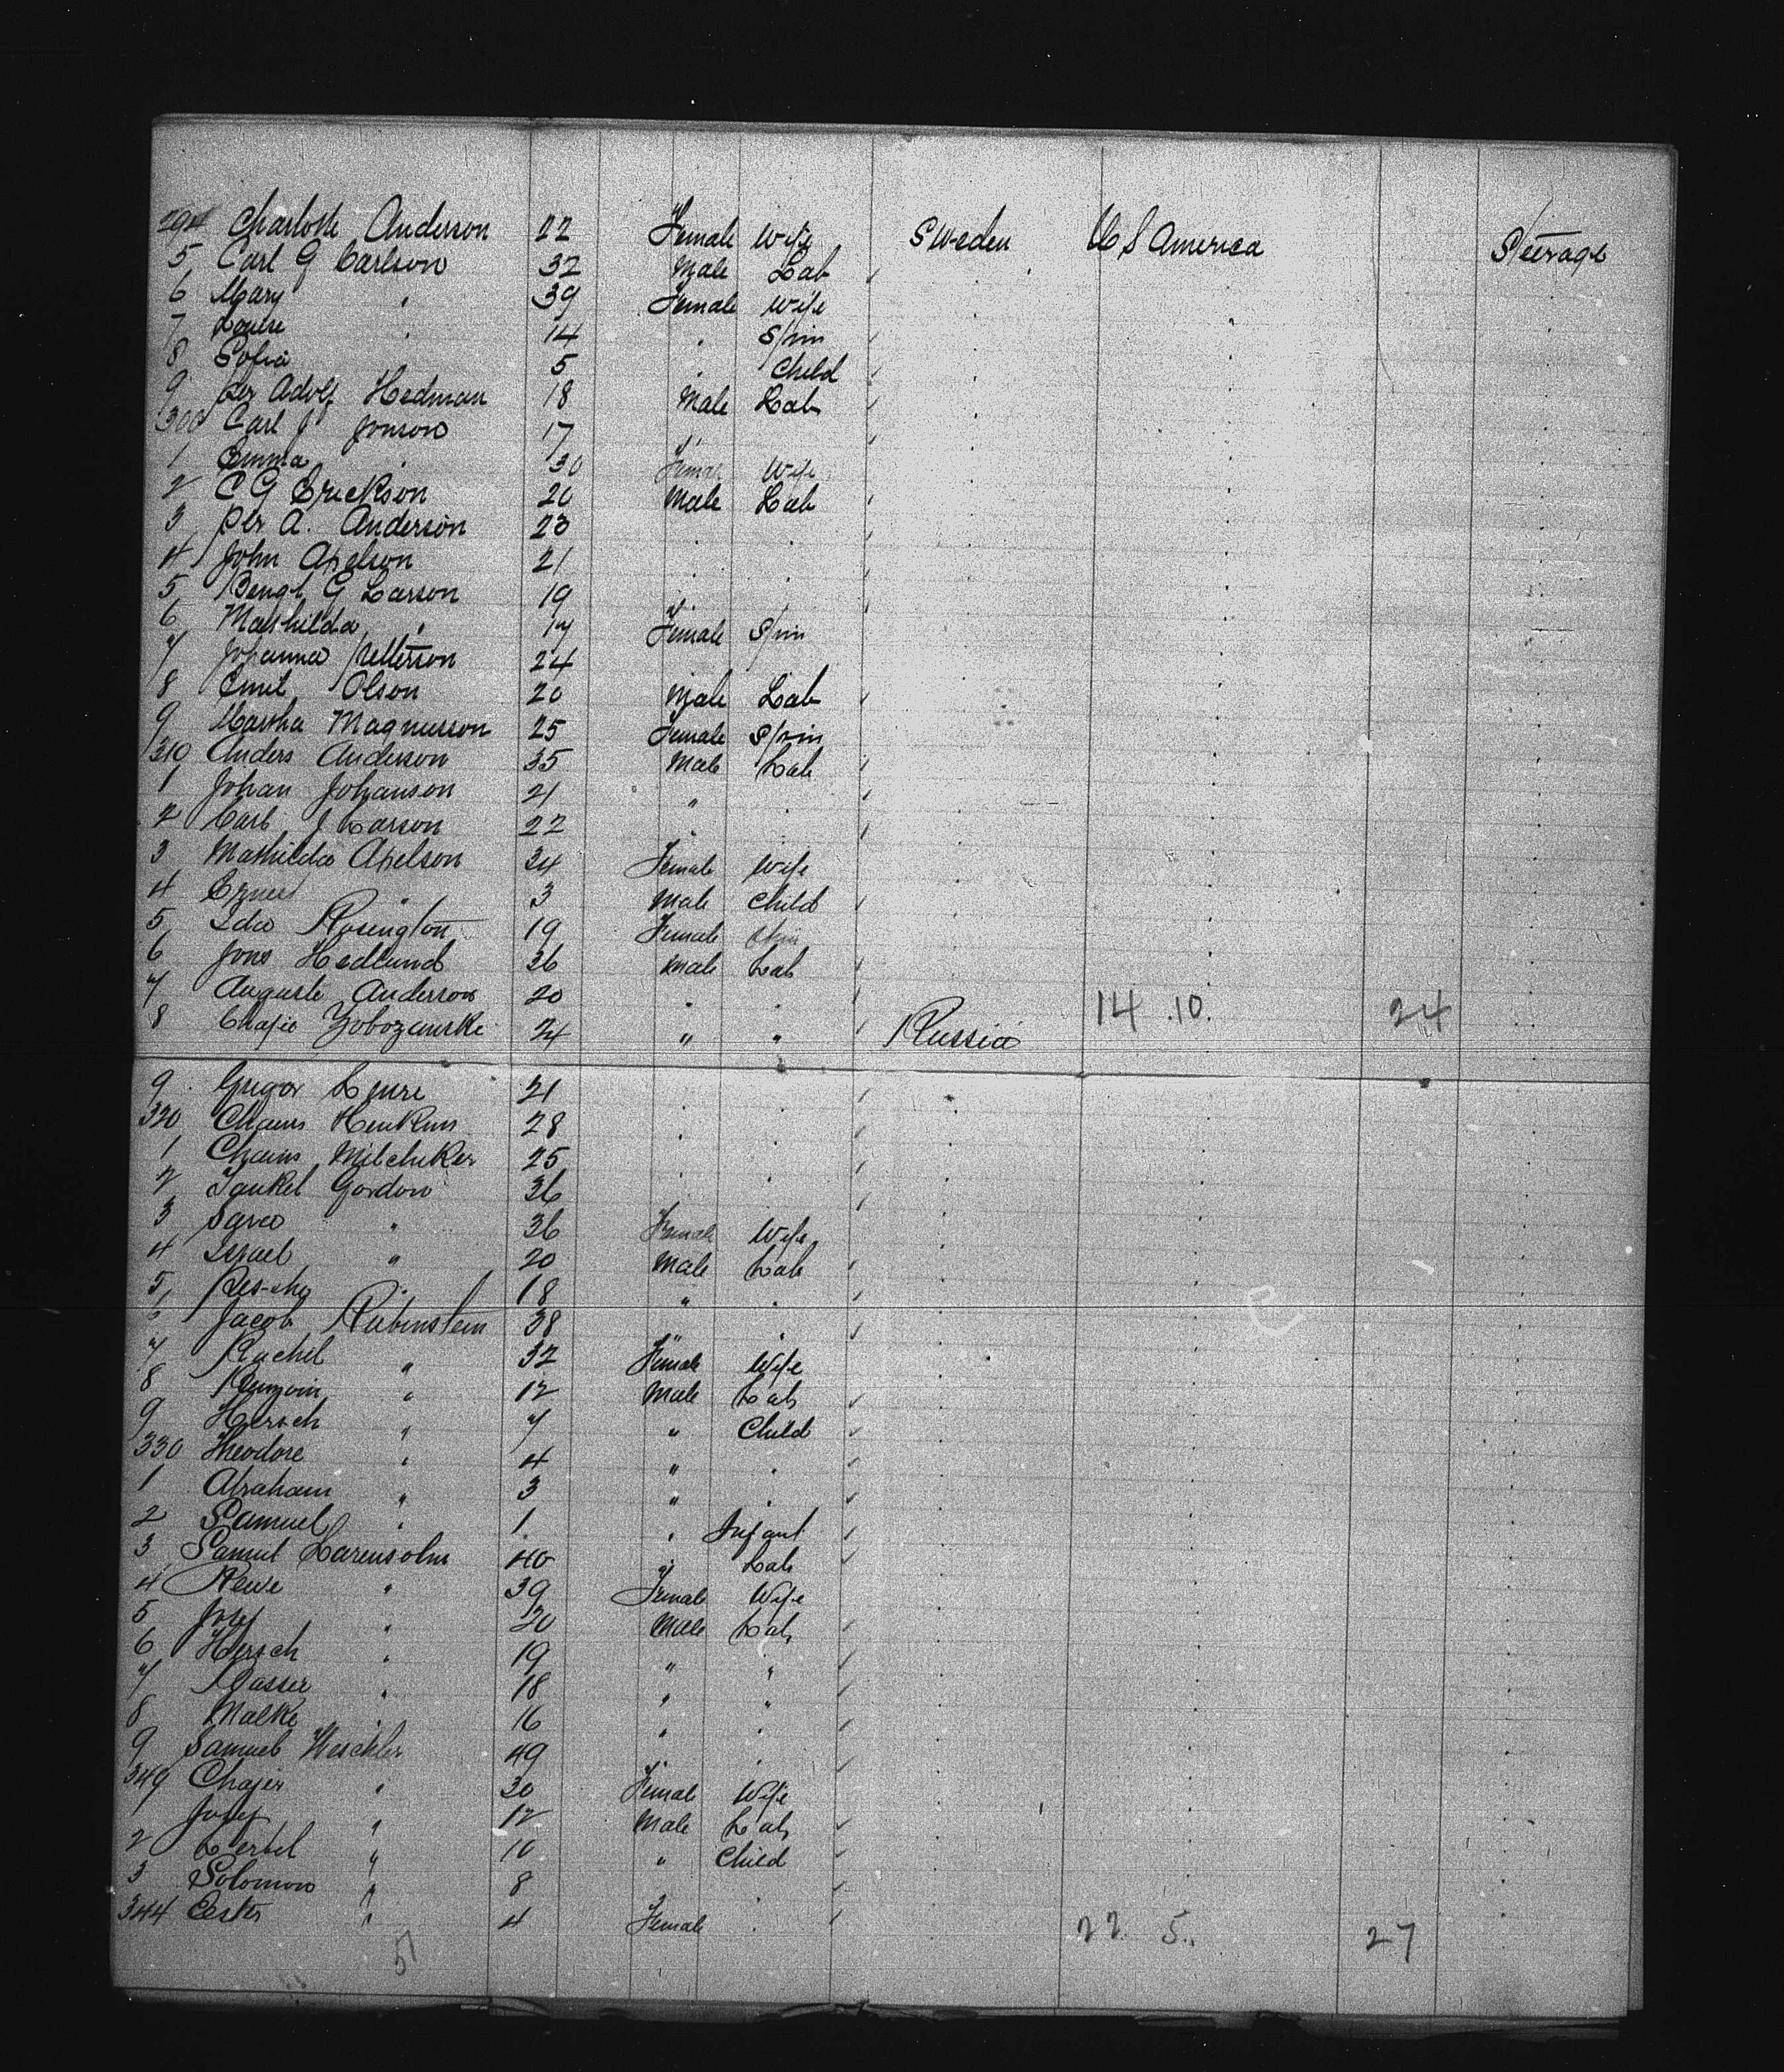 294 Charlotte Anderson 22 Female Wife Sweden U S America Steerage
5 Carl G Carlson 32 Male Lab
6 Mary " 39 Female Wife
7 Louise " 14 " Spin
8 Sofia 5 " Child
9 Per Adolf Hedman 18 Male Lab
300 Carl J Jonson 17 "
1 Emma " 30 Female Wife
2 C G Erickson 20 Male Lab
3 Per A. Anderson 23 " "
4 John Axelson 21 " "
5 Bengt G Larson 19 " "
6 Mathilda " 17 Female Spin
7 Johanna Petterson 24
8 Emil Olson 20 Male Lab
9 Martha Magnusson 25 Female Spin
310 Anders Anderson 35 Male Lab
1 Johan Johanson 21 " "
2 Carl J Larson 22 " "
3 Mathilda Axelson 34 Female Wife
4 Ernest " 3 Male Child
5 Ida Rosington 19 Female Spin
6 Jons Hedlund 36 Male Lab
7 August Anderson 20 " " 14 10. 24
8 24 " " Russia
9 Gregor 21 " "
320 Chaim 28 " "
1 Chaim Milcheker 25 " "
2 Jankel Gordon 36 " "
3 Sara " 36 Female Wife
4 Israel " 20 Male Lab
5 " 18 " "
6 Jacob Rubinstein 38 " "
7 Rachel " 32 Female Wife
8 " 12 Male Lab
9 Hersch " 7 " Child
330 Theodore " 4 " "
1 Abraham " 3 " "
2 Samuel " 1 " Infant
3 Samuel 40 " Lab
4 " 39 Female Wife
5 Josef " 20 Male Lab
6 Hersch " 19 " "
7 " 18 " "
8 Malke " 16 " "
9 Samuel 49 " "
349 " 30 Female Wife
Josef " 12 Male Lab
2 " 10 " Child
3 Solomon " 8 " "
344 Ester " 4 Female " 22 5. 27
51